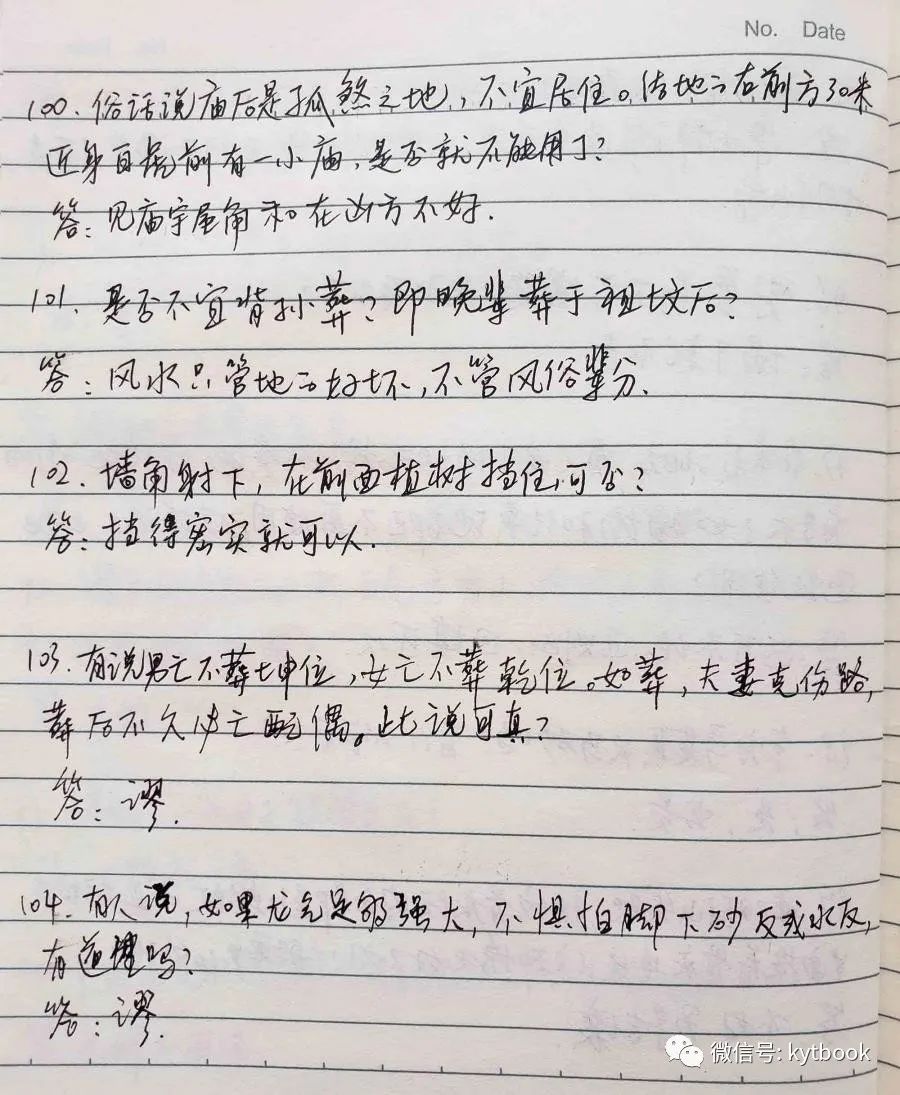 No. Date
100.俗话说庙后是孤煞之地,不宜居住。结地之右前方30米
近身白虎前有一小庙,是否就不能用了?
答:见庙宇屋角和在凶方不好.
101.是否不宜背孙葬?即晚辈葬于祖坟后?
答:风水只管地之好坏,不管风俗辈分.
102.墙角射下,在前面植树挡住,可否?
答:挡得密实就可以.
103.有说男亡不葬坤位,女亡不葬乾位。如葬,夫妻克伤路,
葬后不久必亡配偶。此说可真?
答:谬.
104.有人说,如果龙气足够强大,不惧怕脚下砂反或水反,
有道理吗?
答:谬.
微信号: kytbook